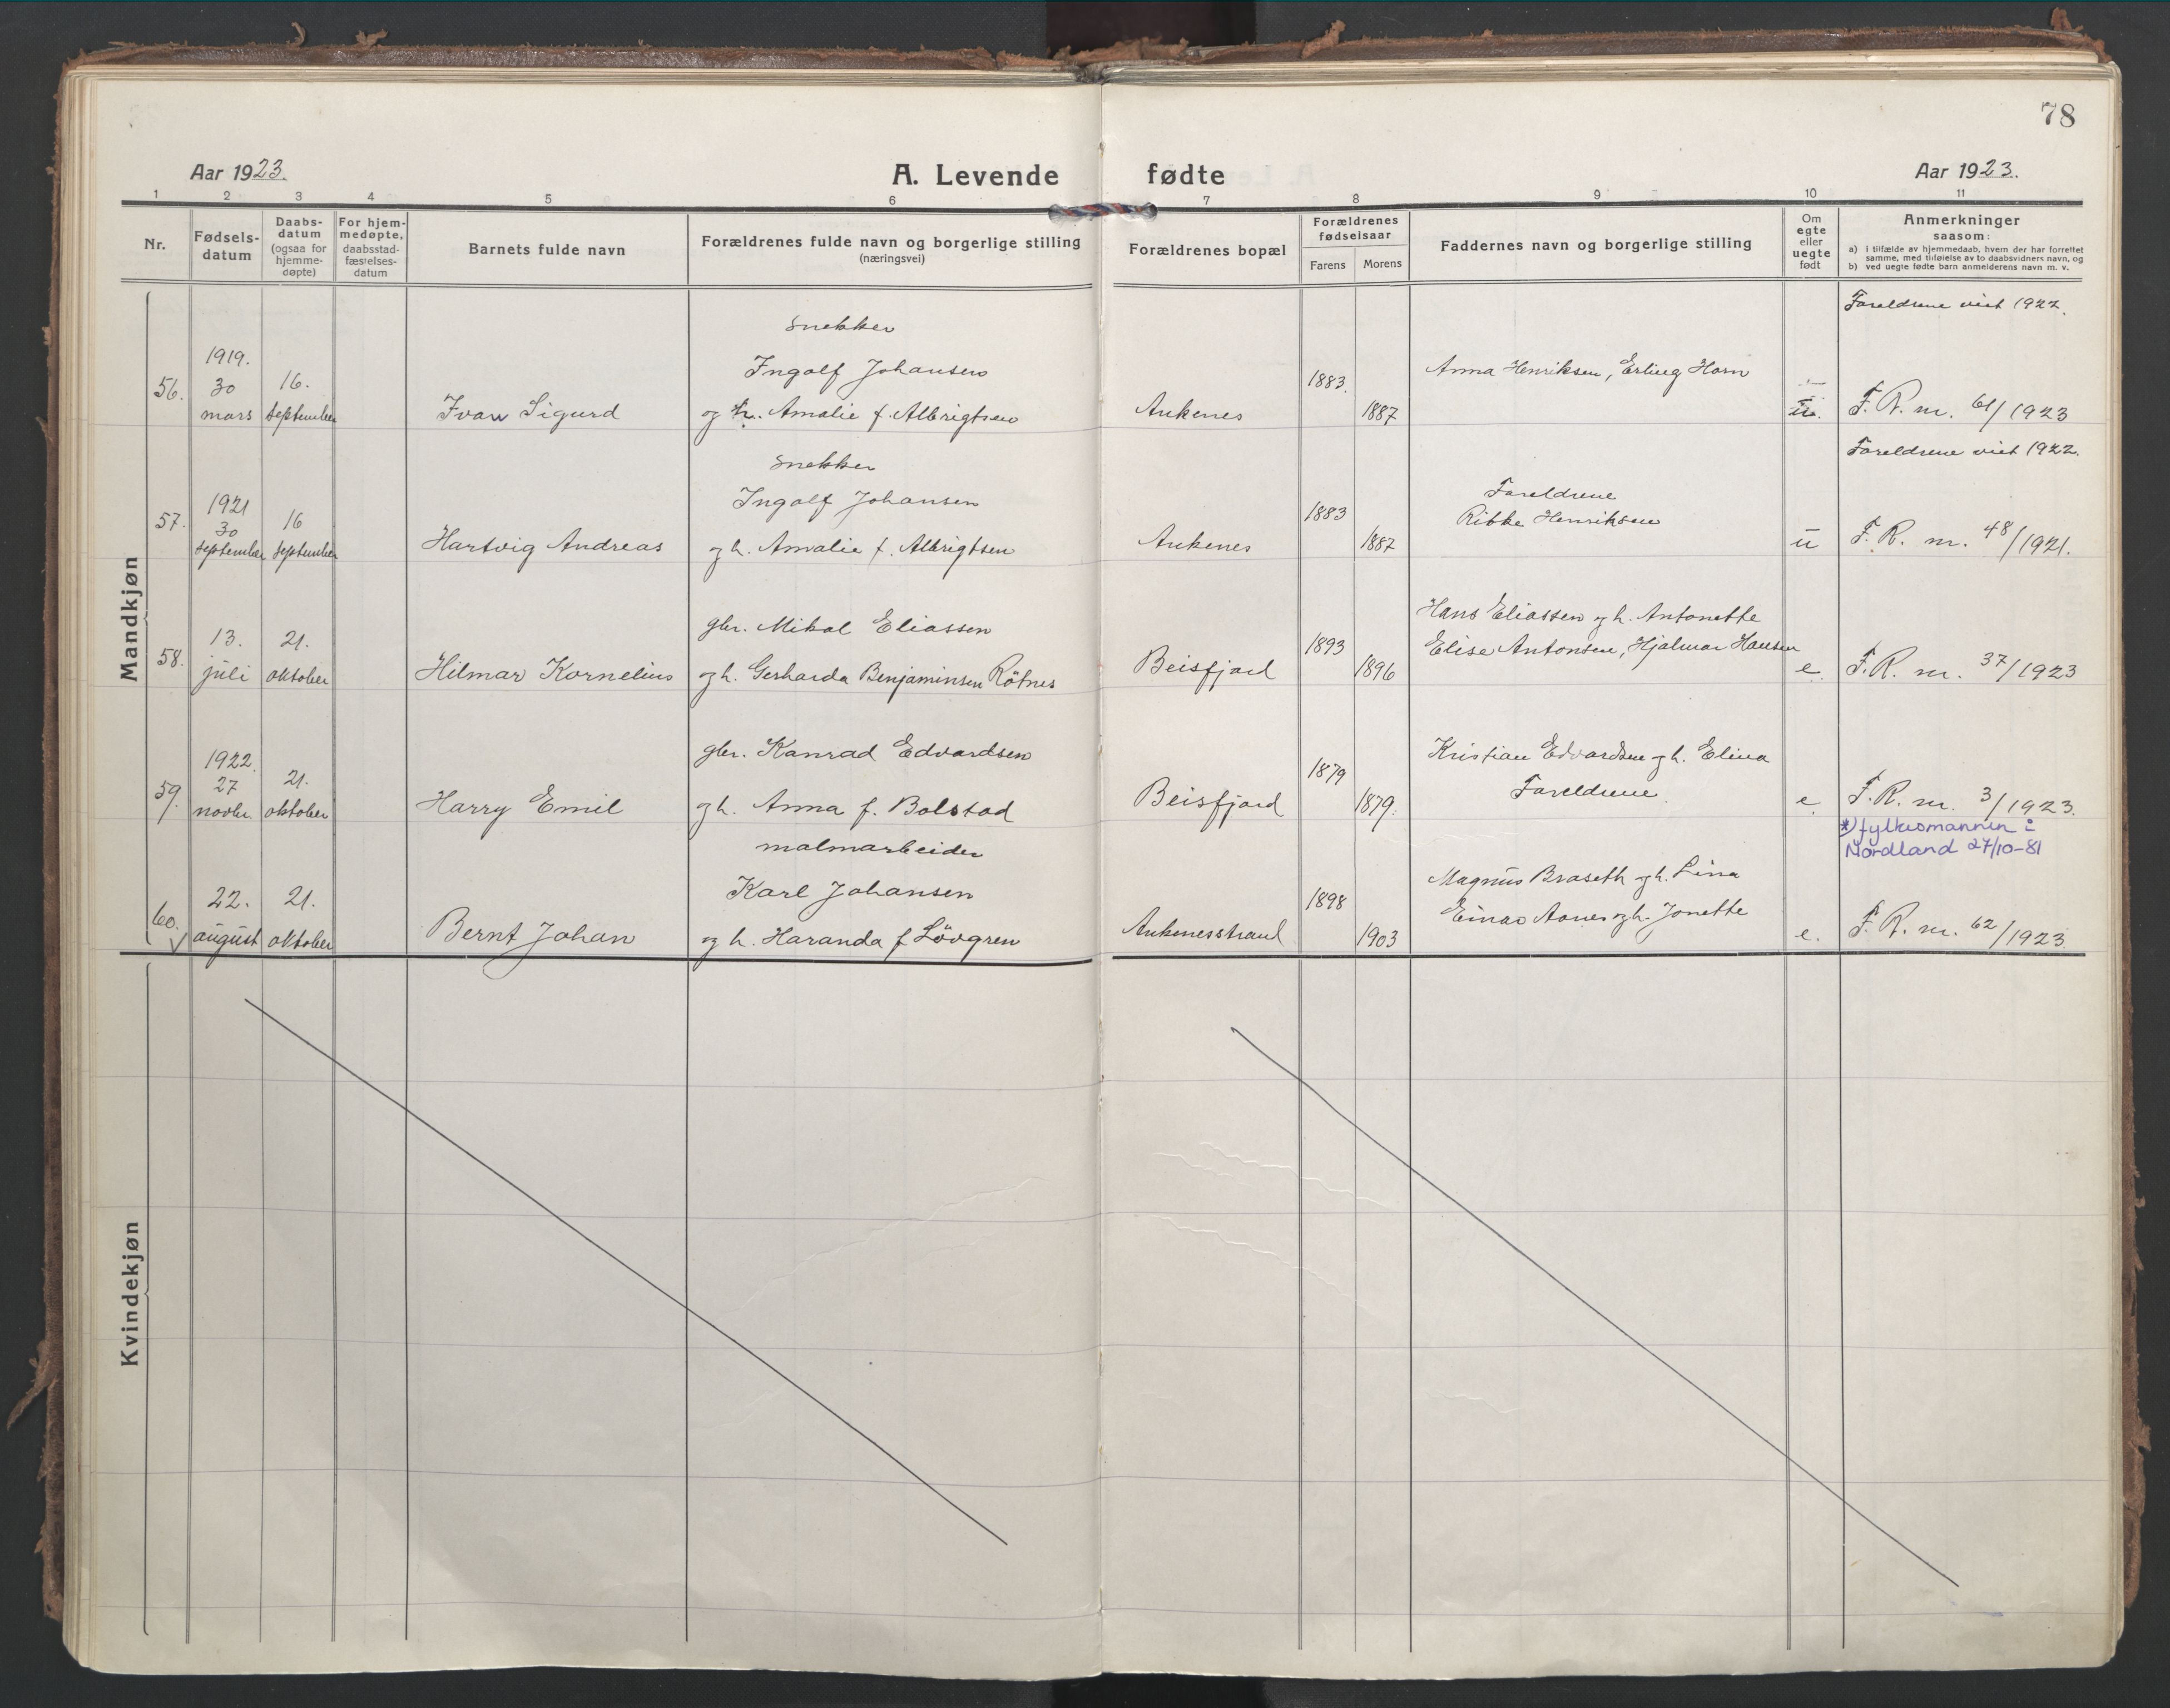 78
Aar 1923.
A. Levende fødte
Aar 1923.
1 2 3 4 5 6 7 8 9 10 11
Nr.
Fødsels-
datum
Daabs-
datum
(ogsaa for
hjemme-
døpte)
For hjem-
medøpte,
daabsstad-
fæstelses-
datum
Barnets fulde navn
Forældrenes fulde navn og borgerlige stilling
(næringsvei)
Forældrenes bopæl
Forældrenes
fødselsaar
Farens Morens
Faddernes navn og borgerlige stilling
Om
egte
eller
uegte
født
Anmerkninger
saasom:
a) i tilfælde av hjemmedaab, hvem der har forrettet
samme, med tilføielse av to daabsvidners navn, og
b) ved uegte fødte barn anmelderens navn m. v.
Mandkjøn
56.
1919.
30
mars
16.
september
Ivar Sigurd
snekker
Ingolf Johansen
og h. Amalie f. Albrigtsen
Ankenes
1883.
1887
Anna Henriksen, Erling Horn
u.
Foreldrene viet 1922.
F. R. nr. 61/1923
57.
1921
30
september
16
september
Hartvig Andreas
snekker
Ingolf Johansen
og h. Amalie f. Albrigtsen
Ankenes
1883
1887
Foreldrene
Rikke Henriksen
u
Foreldrene viet 1922.
F. R. nr. 48/1921.
58.
13.
juli
21.
oktober
Hilmar Kornelius
gbr. Mikal Eliassen
og h. Gerharda Benjaminsen Rötnes
Beisfjord
1893
1896
Hans Eliassen og h. Antonette
Elise Antonsen, Hjalmar Hansen
e.
F. R. nr. 37/1923
59.
1922.
27
novbr.
21.
oktober
Harry Emil
gbr. Konrad Edvardsen
og h. Anna f. Bolstad
Beisfjord
1879
1879.
Kristian Edvardsen og h. Elina
Foreldrene
e.
F. R. nr. 3/1923.
*) fylkesmannen i
Nordland 27/10-81
60.
22.
august
21.
oktober
Bernt Johan
malmarbeider
Karl Johansen
og h. Haranda f Lövgren
Ankenesstrand
1898
1903
Magnus Braseth og h. Lina
Einar Aones og h. Jonette
e.
F. R. nr. 62/1923.
Kvindekjøn